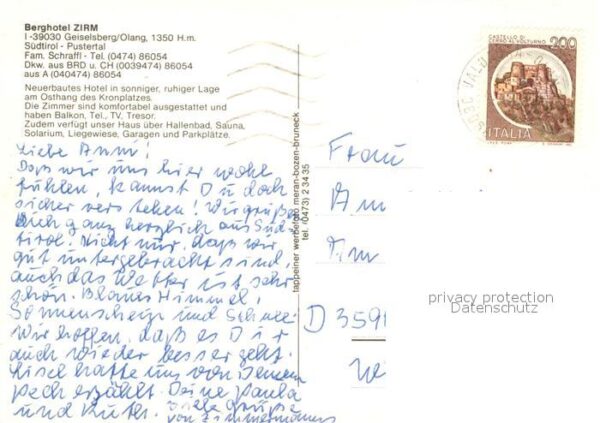 Berghotel ZIRM
I -39030 Geiselsberg/Olang, 1350 H.m.
Südtirol - Pustertal
Fam. Schraffl - Tel. (0474) 86054
Dkw. aus BRD u. CH (0039474) 86054
aus A (040474) 86054
Neuerbautes Hotel in sonniger, ruhiger Lage
am Osthang des Kronplatzes.
Die Zimmer sind komfortabel ausgestattet und
haben Balkon, Tel., TV, Tresor.
Zudem verfügt unser Haus über Hallenbad, Sauna,
Solarium, Liegewiese, Garagen und Parkplätze.
Liebe Anni!
Daß wir uns hier wohl
fühlen, kannst Du doch
sicher verstehen! Wir grüßen
Dich ganz herzlich aus Süd-
tirol. Nicht nur, daß wir
gut untergebracht sind,
auch das Wetter ist sehr
schön. Blauer Himmel,
Sonnenschein und Schnee!
Wir hoffen, daß es Dir
auch wieder besser geht.
Lisel hatte uns von Deinem
Pech erzählt. Deine Paula
und Ruth. Viele Grüße
von Zimmermanns
tappeiner werbering meran-bozen-bruneck
tel. (0473) 2 34 35
CASTELLO DI
CERRO AL VOLTURNO
200
ITALIA
Frau
Am
Am
D 3591
privacy protection
Datenschutz